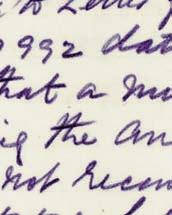 to Letter
992 dat
that a m
ing the An
not recom